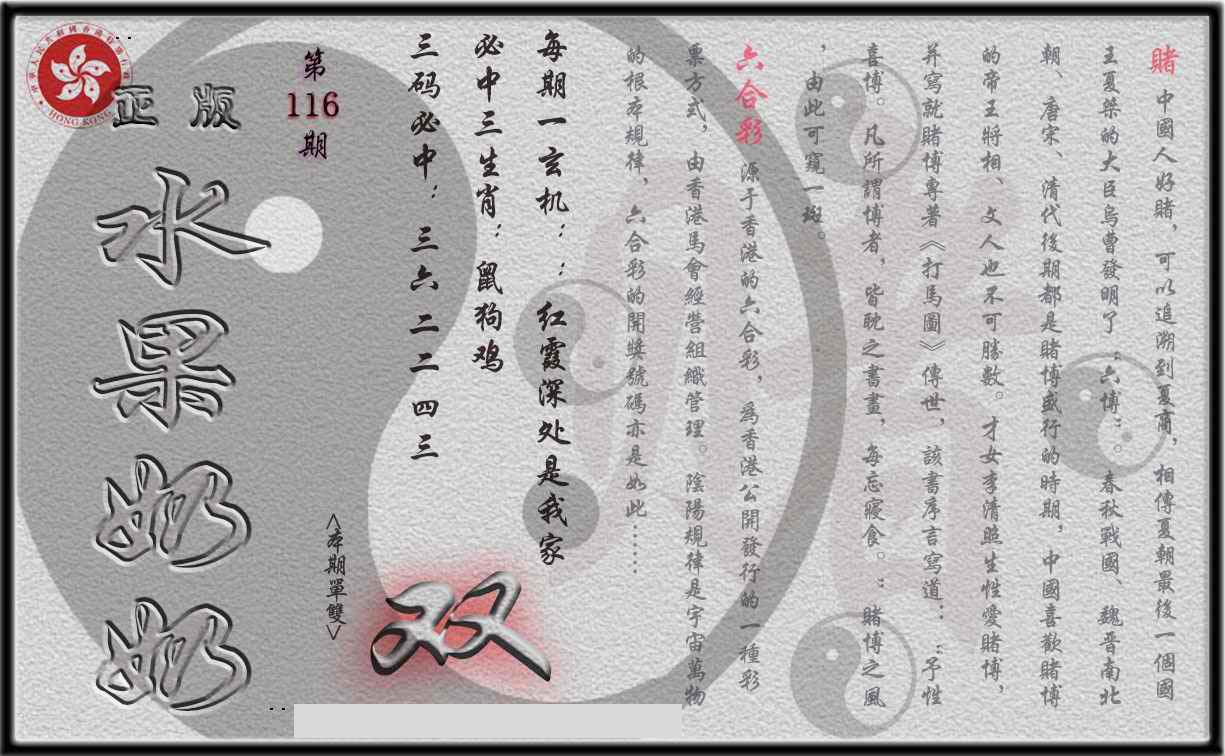 賭 中國人好賭，可以追溯到夏商，相傳夏朝最後一個國
王夏桀的大臣烏曹發明了“六博”。春秋戰國、魏晋南北
朝、唐宋、清代後期都是賭博盛行的時期，中國喜歡賭博
的帝王將相、文人也不可勝數。才女李清照生性愛賭博，
并寫就賭博專著《打馬圖》傳世，該書序言寫道：“予性
喜博。凡所謂博者，皆耽之晝，每忘寢食。”賭博之風
，由此可窺一斑。
六合彩 源于香港的六合彩，為香港公開發行的一種彩
票方式，由香港馬會經營組織管理。陰陽規律是宇宙萬物
的根本規律，六合彩的開獎號碼亦是如此……
每期一玄机：：红霞深处是我家
必中三生肖：鼠狗鸡
三码必中：三六 二二 四三
第
116
期
正版
水果奶奶
<本期單雙>
双
HONG KONG